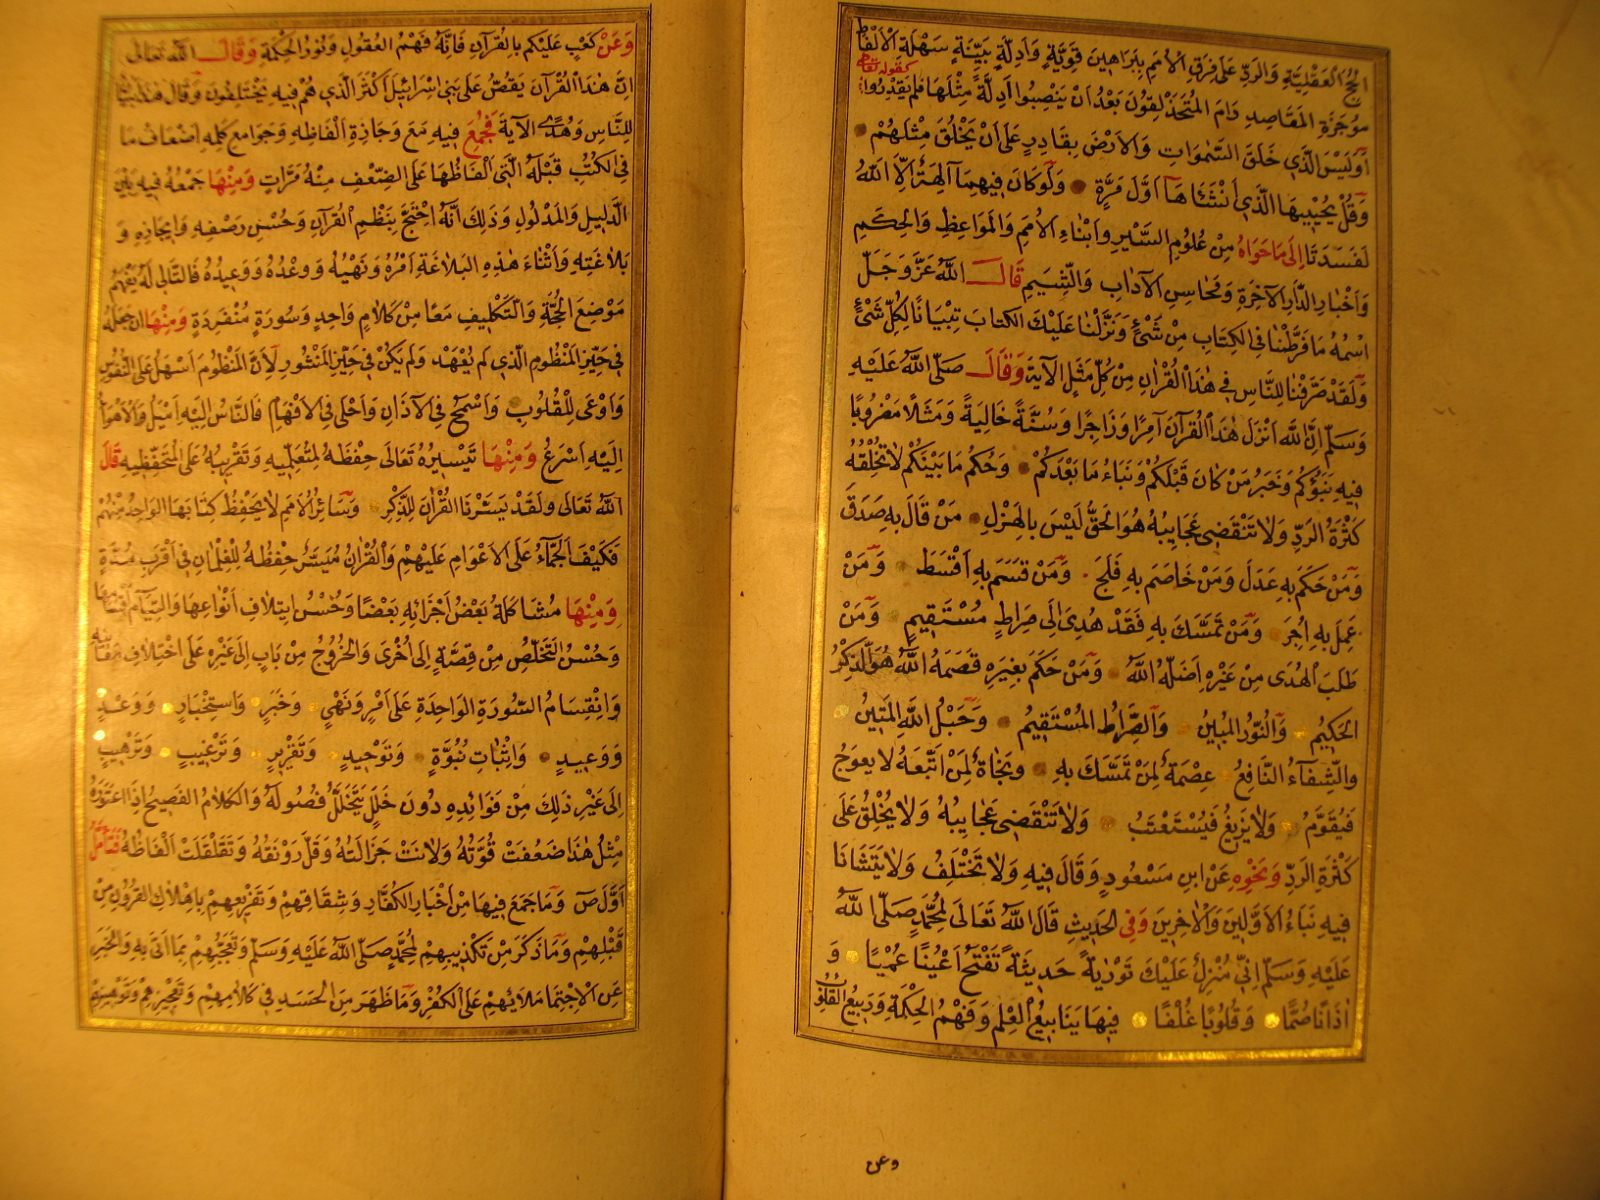 الحجج العقلية والرد على فرق الأمم ببراهين قوية وأدلة بينة سهلة الألفاظ
موجزة المقاصد رام المتحذلقون بعد أن ينصبوا أدلة مثلها فلم يقدروا
كقوله تعالى
أوليس الذي خلق السموات والأرض بقادر على أن يخلق مثلهم
وقل يحييها الذي أنشأها أول مرة ولو كان فيهما آلهة إلا الله
لفسدتا إلى ما حواه من علوم السير وأنباء الأمم والمواعظ والحكم
وأخبار الدار الآخرة ومحاسن الآداب والشيم قال الله عز وجل
اسمه ما فرطنا في الكتاب من شئ ونزلنا عليك الكتاب تبيانا لكل شئ
ولقد صرفنا للناس في هذا القرآن من كل مثل الآية وقال صلى الله عليه
وسلم إن الله أنزل هذا القرآن آمرا وزاجرا وسنة خالية ومثلا مضروبا
فيه نبؤكم وخبر من كان قبلكم ونباء ما بعدكم وحكم ما بينكم لا تخلقه
كثرة الرد ولا تنقضي عجايبه هو الحق ليس بالهزل من قال به صدق
ومن حكم به عدل ومن خاصم به فلج ومن قسم به أقسط ومن
عمل به أجر ومن تمسك به فقد هدى إلى صراط مستقيم ومن
طلب الهدى من غيره أضله الله ومن حكم بغيره قصمه الله هو الذكر
الحكيم والنور المبين والصراط المستقيم وحبل الله المتين
والشفاء النافع عصمة لمن تمسك به ونجاة لمن اتبعه لا يعوج
فيقوم ولا يزيغ فيستعتب ولا تنقضي عجايبه ولا يخلق على
كثرة الرد ونحوه عن ابن مسعود وقال فيه ولا تختلف ولا يتشانا
فيه نباء الأولين والآخرين وفي الحديث قال الله تعالى لمحمد صلى الله
عليه وسلم إني منزل عليك تورية حديثة تفتح أعينا عميا و
آذانا صما وقلوبا غلفا فيها ينابيع العلم وفهم الحكمة وربيع القلوب
وعن
وعن كعب عليكم بالقرآن فإنه فهم العقول ونور الحكمة وقال الله تعالى
إن هذا القرآن يقص على بني اسرائيل أكثر الذي هم فيه يختلفون وقال هذا بيان
للناس وهدى الآية فجمع فيه مع وجازة ألفاظه وجوامع كلمه أضعاف ما
في الكتب قبله التي ألفاظها على الضعف منه مرات ومنها جمعه فيه بين
الدليل والمدلول وذلك أنه احتج بنظم القرآن وحسن رصفه وإيجازه و
بلاغته وأثناء هذه البلاغة أمره ونهيه ووعده ووعيده فالتالي له يفهم
موضع الحجة والتكليف معا من كلام واحد وسورة منفردة ومنها ان جعله
في حيز المنظوم الذي لم يعهد ولم يكن في حيز المنثور لأن المنظوم أسهل على النفوس
وأوعى للقلوب وأسمح في الآذان وأحلى في الأفهام فالناس إليه أميل والأهواء
إليه أسرع ومنها تيسيره تعالى حفظه لمتعلميه وتقريبه على المتحفظيه قال
الله تعالى ولقد يسرنا القرآن للذكر وسائر الأمم لا يحفظ كتابها الواحد منهم
فكيف الجماء على الأعوام عليهم والقرآن ميسر حفظه للغلمان في أقرب مدة
ومنها مشاكلة بعض أجزائه بعضا وحسن ايتلاف أنواعها والتيام أقسامها
وحسن التخلص من قصة إلى أخرى والخروج من باب إلى غيره على اختلاف معانيه
وانقسام السورة الواحدة على أمر ونهي وخبر واستخبار ووعد
ووعيد وإثبات نبوة وتوحيد وتقرير وترغيب وترهيب
إلى غير ذلك من فوائده دون خلل يتخلل فصوله والكلام الفصيح إذا اعتوره
مثل هذا ضعفت قوته ولانت جزالته وقل رونقه وتقلقلت ألفاظه فتأمل
أول ص وما جمع فيها من أخبار الكفار وشقاقهم وتقريعهم بإهلاك القرون من
قبلهم وما ذكر من تكذيبهم لمحمد صلى الله عليه وسلم وتعجبهم مما أتى به والخبر
عن الاجتماع ملائهم على الكفر وما ظهر من الحسد في كلامهم وتعجيزهم وتوهينهم